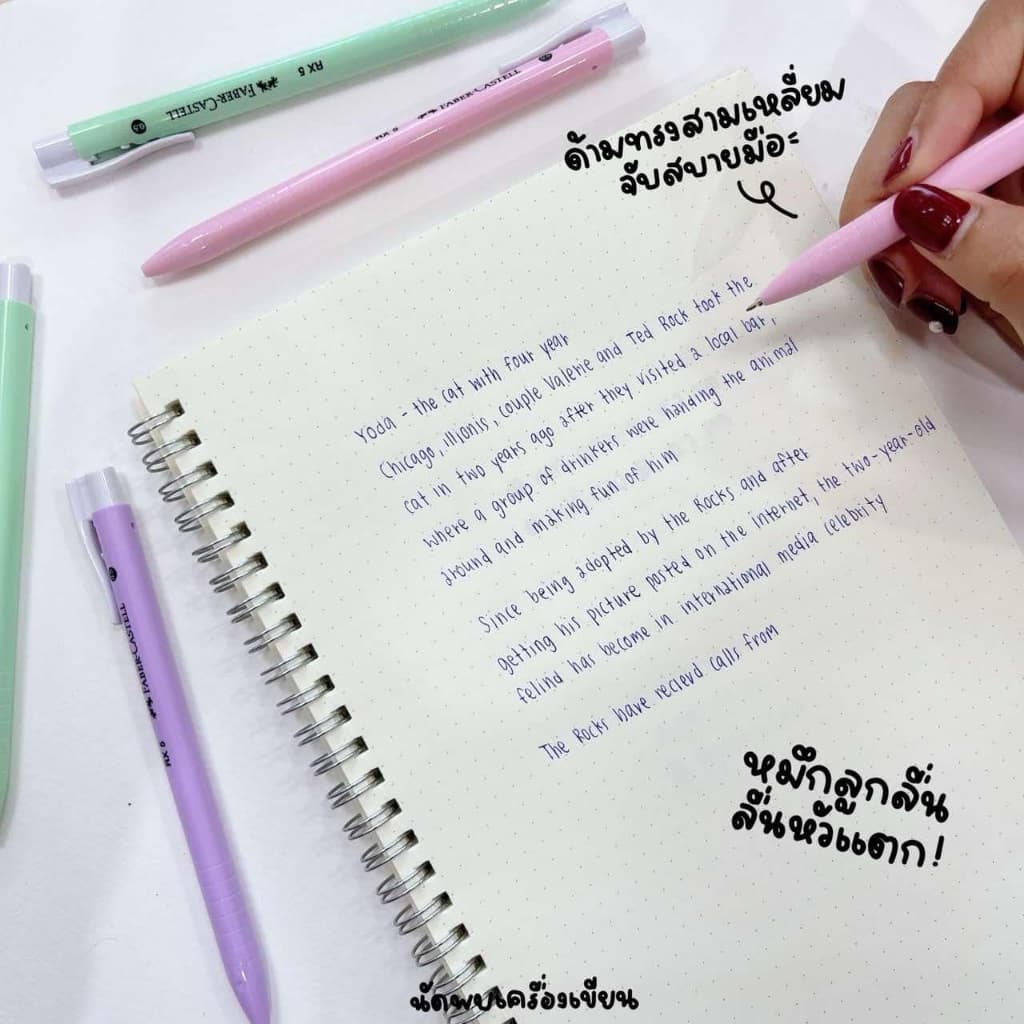 FABER-CASTELL RX 5
0.5
RX 5 FABER-CASTELL
ด้ามทรงสามเหลี่ยม
จับสบายมือะ
Yoda - the cat with four year
Chicago, Illionis, couple Valerie and Ted Rock took the
cat in two years ago after they visited a local bar,
where a group of drinkers were handing the animal
around and making fun of him
Since being adopted by the Rocks and after
getting his picture posted on the internet, the two-year-old
felind has become in international media celebrity
The Rocks have recievd calls from
RX 5 FABER-CASTELL
หมึกลูกลื่น
ลื่นหัวแตก!
นัดพบเครื่องเขียน